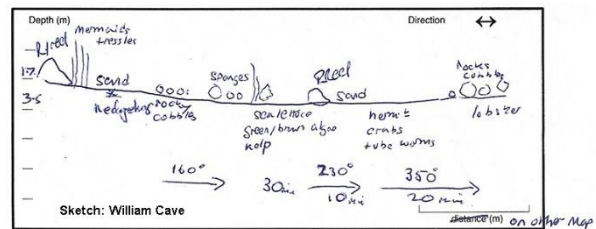 Depth (m)
Direction
mermaids
tressles
Reef
1.7
3.5
sand
Hedgehog
rocks
cobbles
sponges
sea lettuce
green/brown algae
kelp
Reef
sand
hermit
crabs
tube worms
rocks
cobbles
lobster
160°
30 min
230°
10 min
350°
20 min
Sketch: William Cave
distance (m) on other map